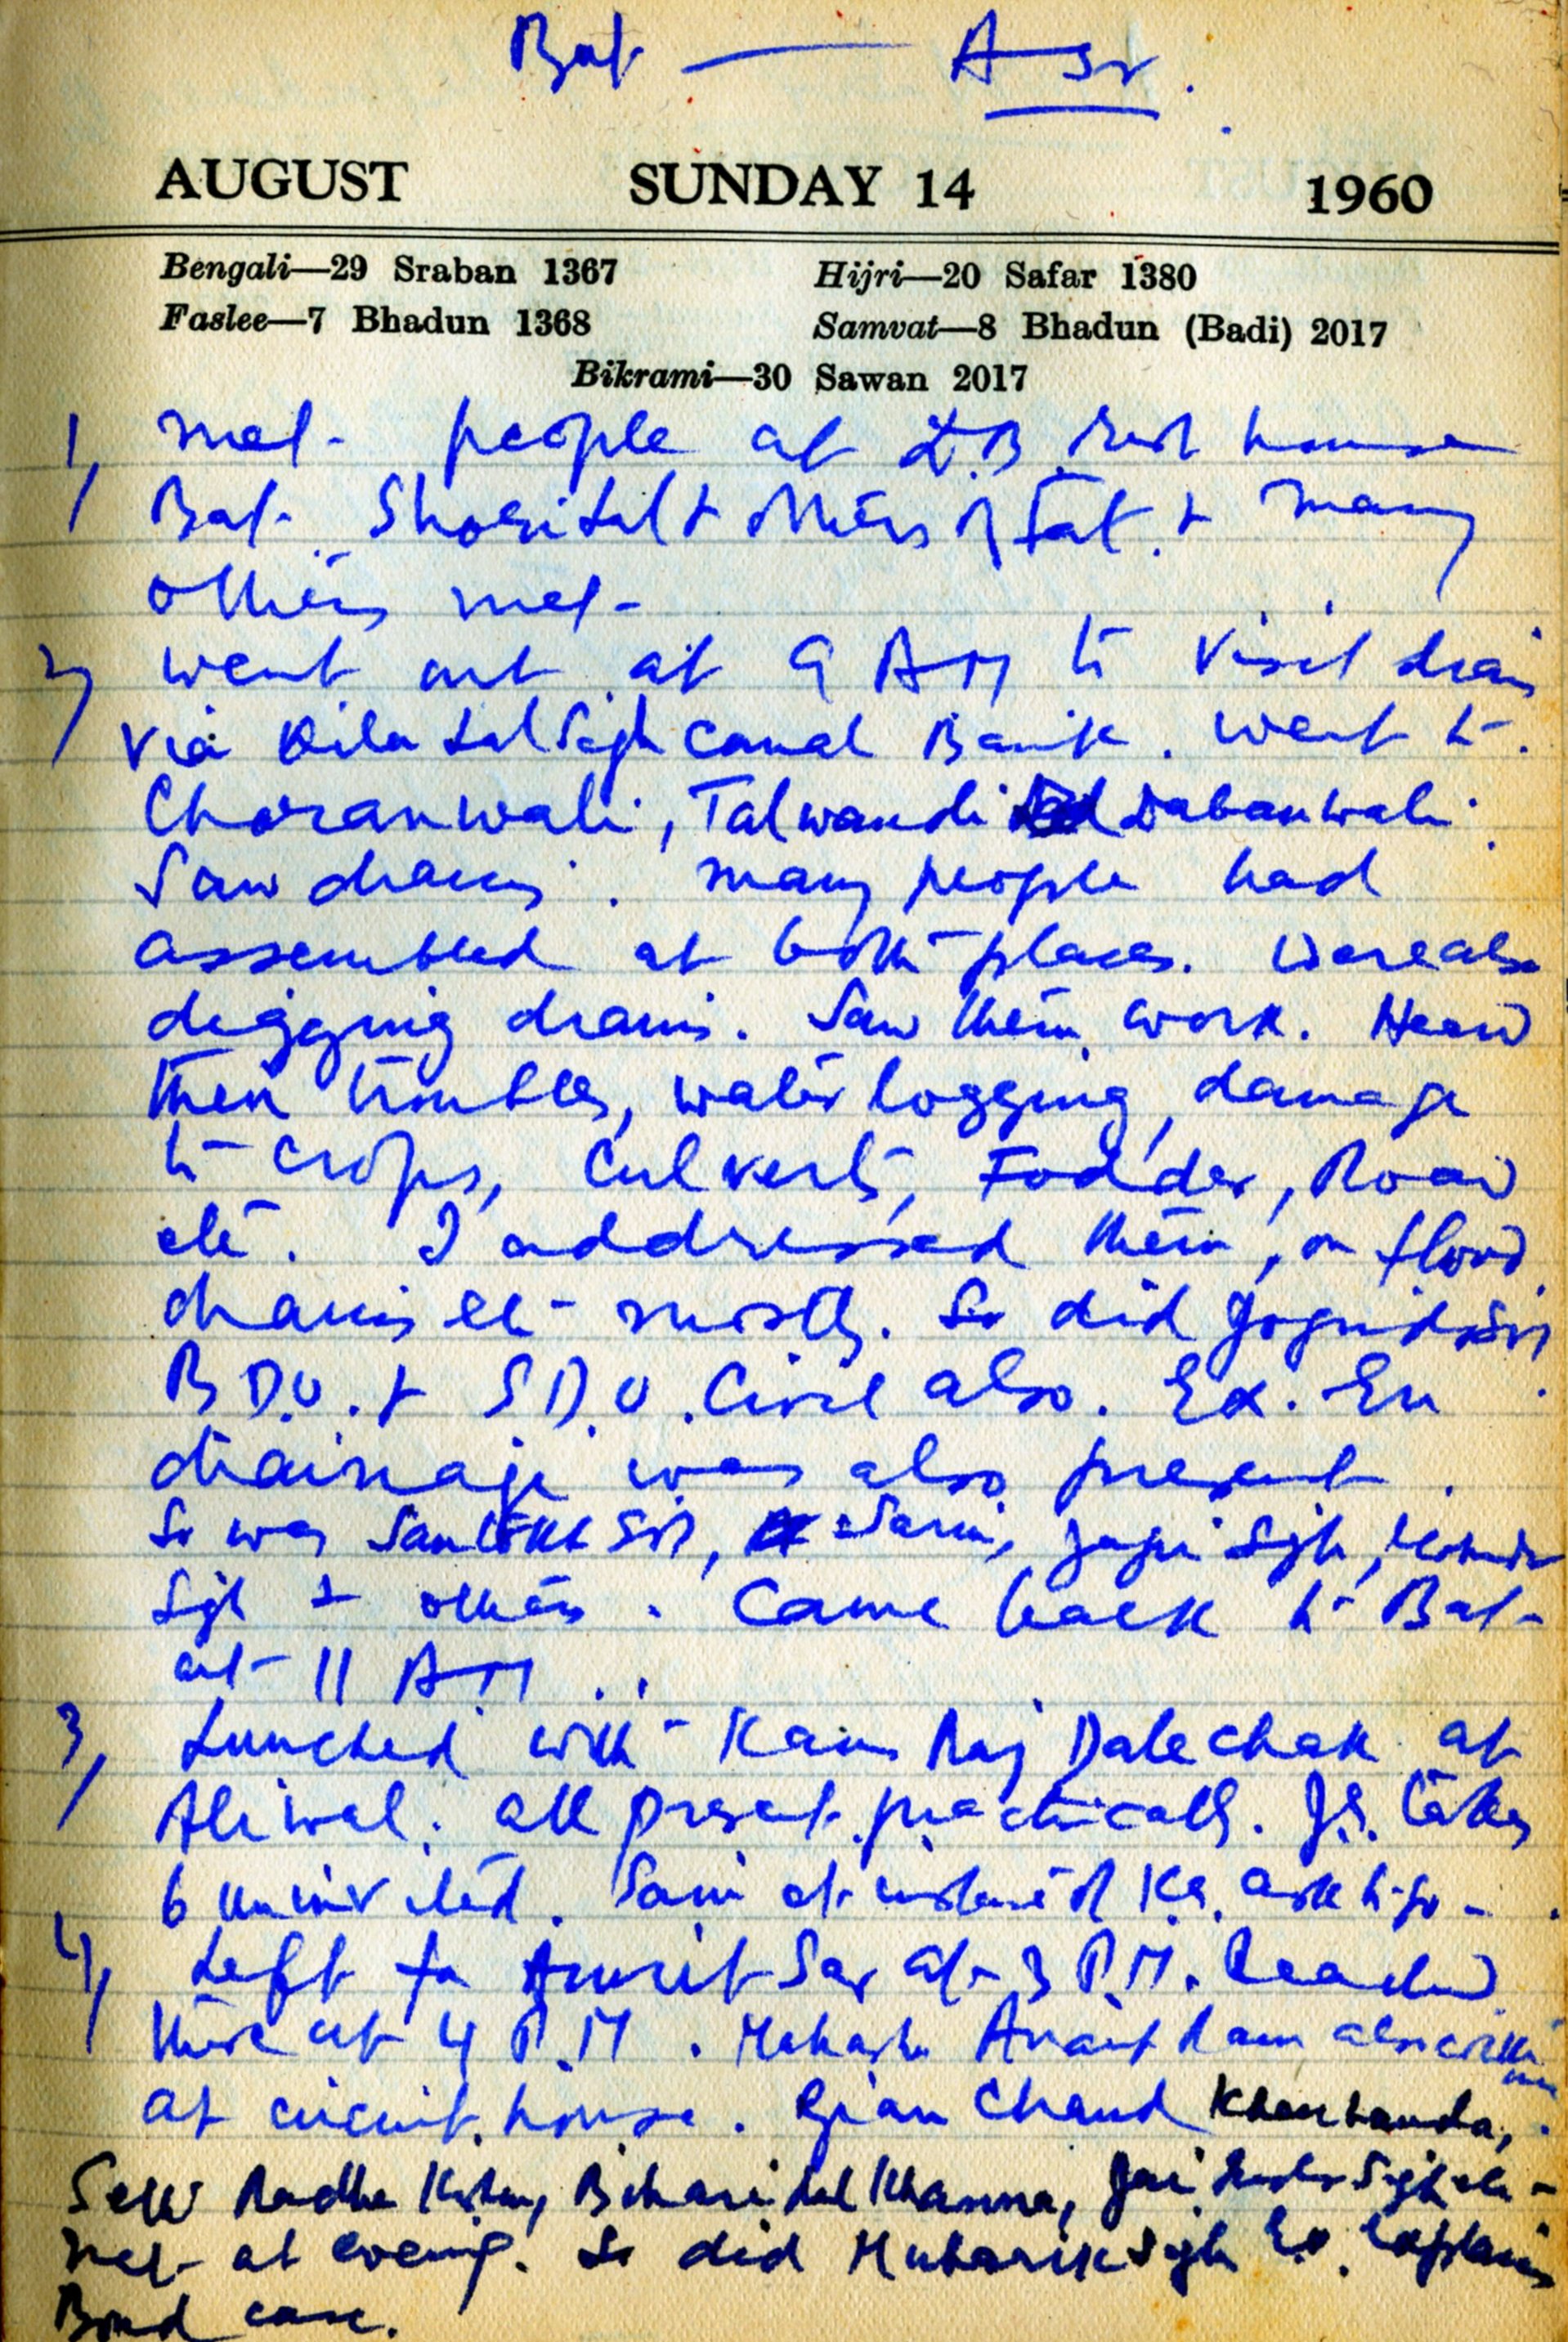 Bat — Asr.
AUGUST SUNDAY 14 1960
Bengali—29 Sraban 1367 Hijri—20 Safar 1380
Faslee—7 Bhadun 1368 Samvat—8 Bhadun (Badi) 2017
Bikrami—30 Sawan 2017
1, Met people at I.B. rest house
Bat. Shori Lal & others of Fat. & many
others met.
2, Went out at 9 AM to visit drain
via Kila Lal Sigh Canal Bank. Went to
Choranwali, Talwandi Dabanwali.
Saw drains. Many people had
assembled at both places. Were also
digging drains. Saw them work. Heard
their troubles, water logging, damage
to crops, culverts, Fodder, Road
etc. I addressed them, on flood
drains etc mostly. So did
B.D.O. & S.D.O. Civil also. Ex. En
drainage was also present.
So was Santokh Sigh,
Sigh & others. Came back to Bat.
at 11 AM.
3, Lunched with Raj Dalechak at
Aliwal. All present practically. J.S. takes
6 uninvited.
4, Left for Amritsar at 3 P.M. Reached
there at 4 P.M. Anant Ram also with me
at circuit house. Gian Chand Kharbanda,
Seth Radha Kishan, Bihari Lal Khanna, Sigh etc
met at evening. So did Mubarik Sigh Ex. Explains
Bond case.